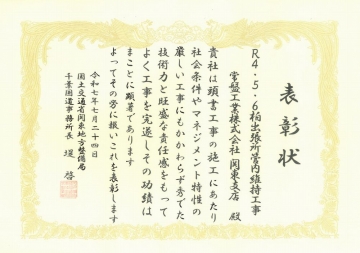 表彰状
R4・5・6柏出張所管内維持工事
常盤工業株式会社 関東支店 殿
貴社は頭書工事の施工にあたり
社会条件やマネジメント特性の
厳しい工事にもかかわらず秀でた
技術力と旺盛な責任感をもって
よく工事を完遂しその功績は
まことに顕著であります
よってその労に報いこれを表彰します
令和七年七月二十四日
国土交通省関東地方整備局
千葉国道事務所長 堤 啓